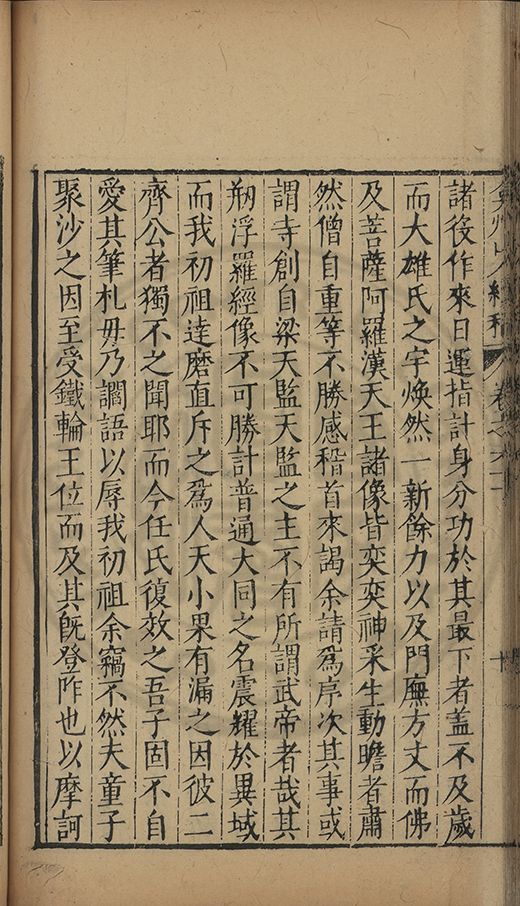 弇州山人續稿 卷之六十 十
諸役作來日運指計身分功於其最下者盖不及歲
而大雄氏之宇煥然一新餘力以及門廡方丈而佛
及菩薩阿羅漢天王諸像皆奕奕神采生動瞻者肅
然僧自重等不勝感稽首來謁余請爲序次其事或
謂寺創自梁天監天監之主不有所謂武帝者哉其
剏浮羅經像不可勝計普通大同之名震耀於異域
而我初祖達磨直斥之爲人天小果有漏之因彼二
齊公者獨不之聞耶而今任氏復效之吾子固不自
愛其筆札毋乃讕語以辱我初祖余竊不然夫童子
聚沙之因至受鐵輪王位而及其旣登阼也以摩訶